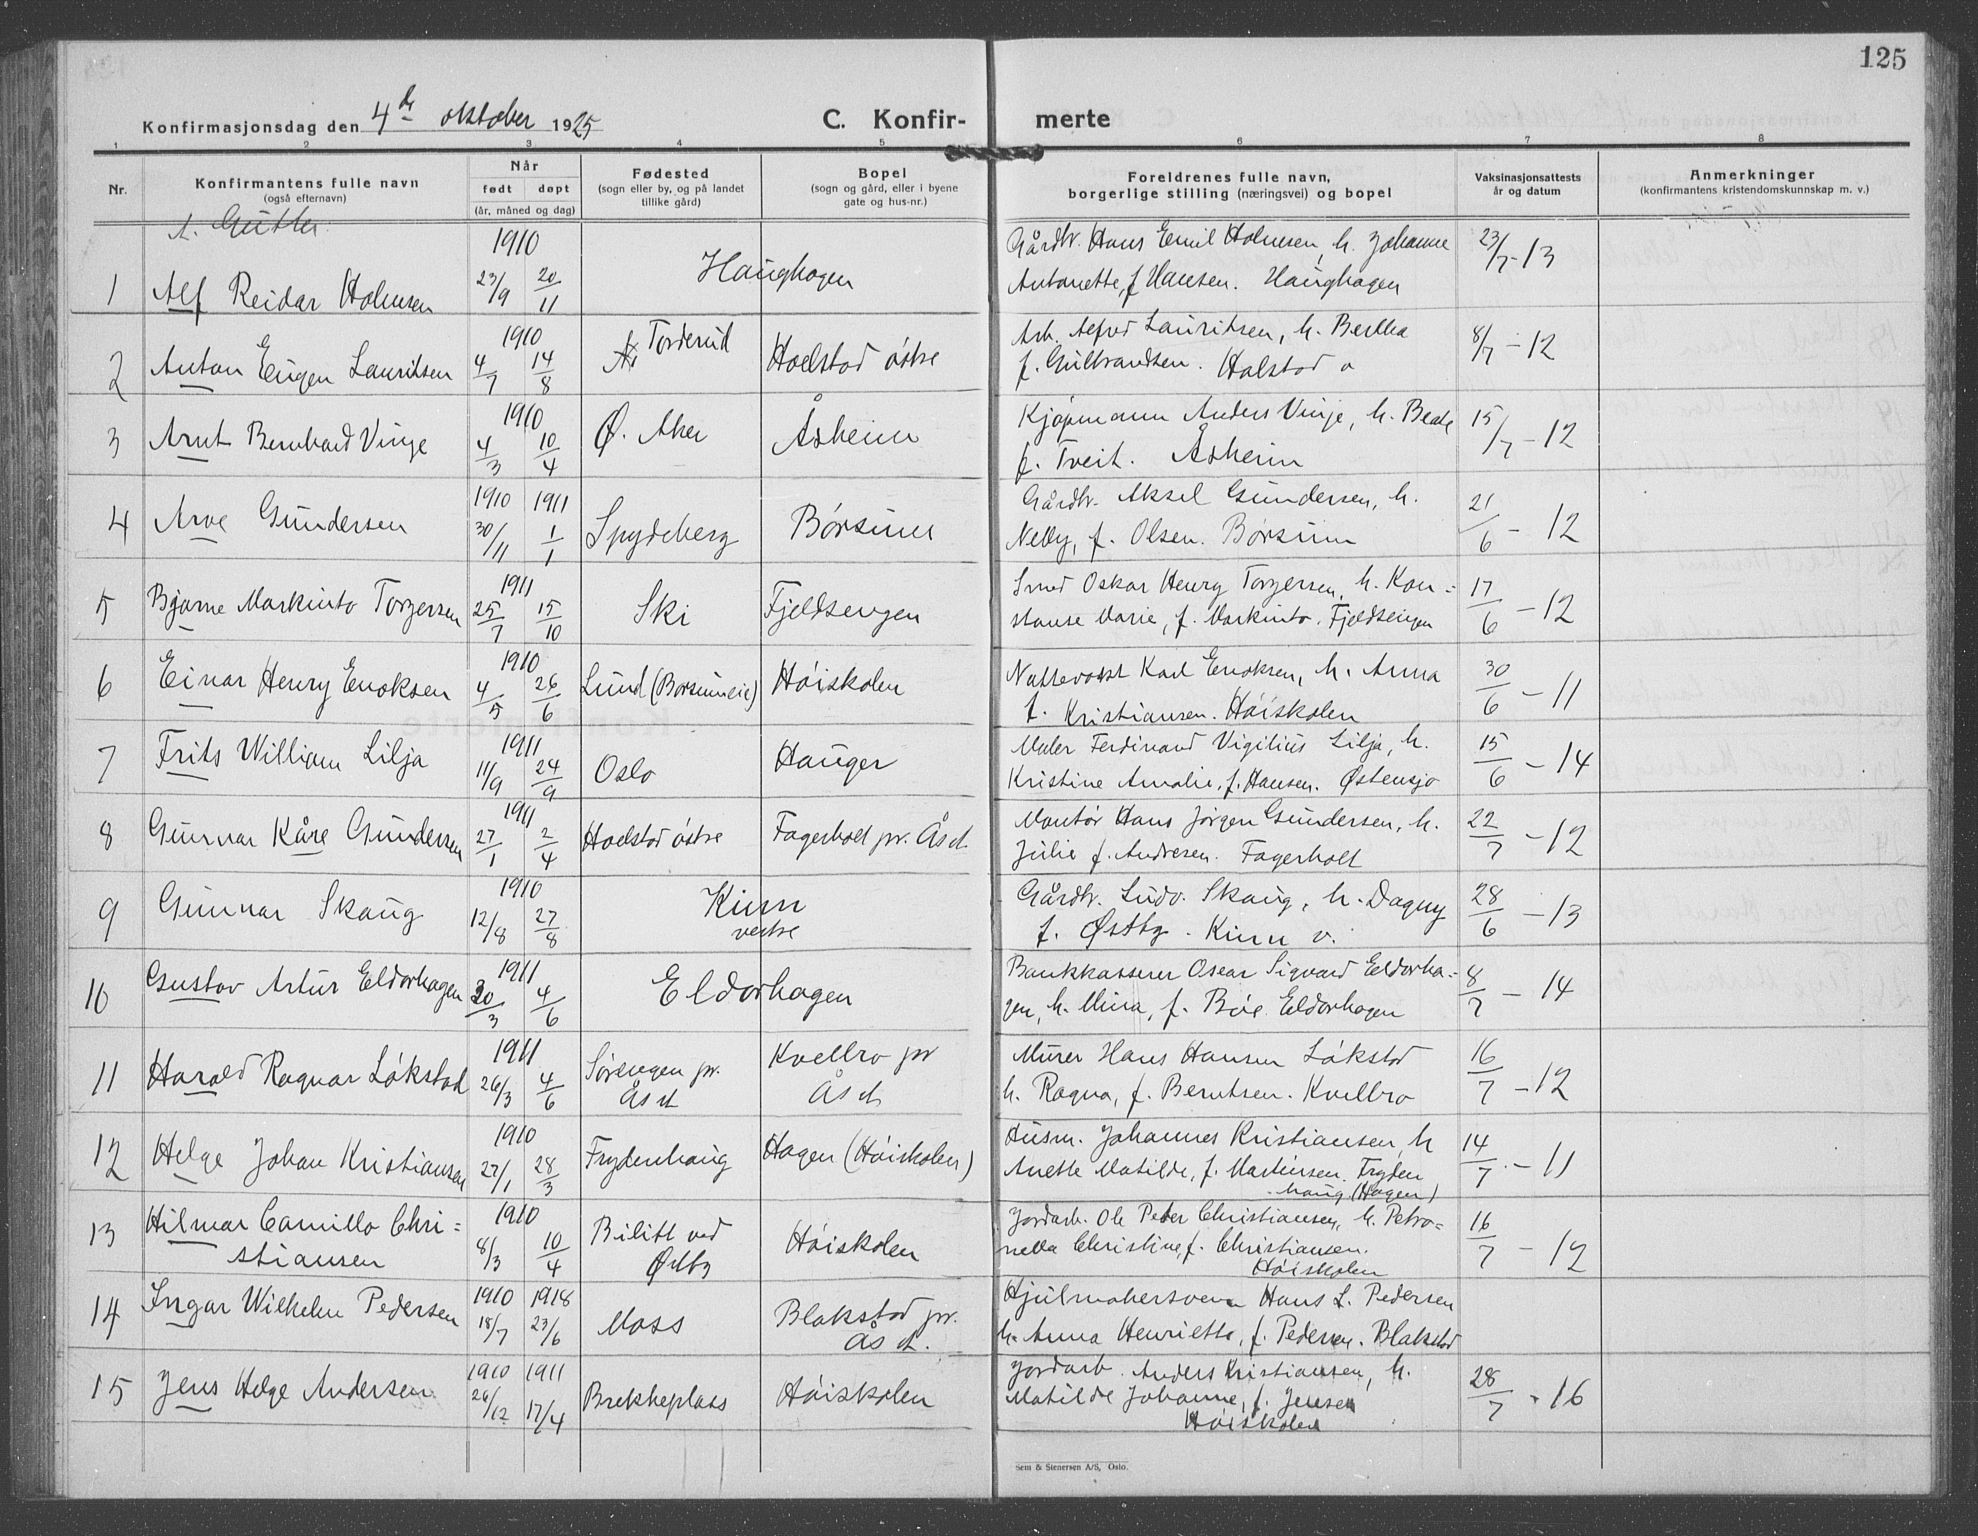 125
Konfirmasjonsdag den 4de oktober 1925
C. Konfir- merte
1 2 3 4 5 6 7 8
Nr.
Konfirmantens fulle navn
(også efternavn)
Når
født døpt
(år, måned og dag)
Fødested
(sogn eller by, og på landet
tillike gård)
Bopel
(sogn og gård, eller i byene
gate og hus-nr.)
Foreldrenes fulle navn,
borgerlige stilling (næringsvei) og bopel
Vaksinasjonsattests
år og datum
Anmerkninger
(konfirmantens kristendomskunnskap m. v.)
A. Gutter
1910
1 Alf Reidar Holmsen 23/9 20/11 Haughagen
Gårdbr. Hans Emil Holmsen, h. Johanne 23/7-13
Antonette, f Hansen. Haughagen
1910
2 Anton Eugen Lauritsen 4/7 14/8 Torderud Hoelstad østre
Arb. Alfred Lauritsen, h. Bertha 8/7-12
f. Gulbrandsen. Holstad ø
1910
3 Arnt Bernhard Vinje 4/3 10/4 Ø. Aker Åsheim
Kjøpmann Anders Vinje, h. Beate 15/7-12
f. Tveit. Åsheim
1910 1911
4 Arve Gundersen 30/11 1/1 Spydeberg Børsum
Gårdbr. Aksel Gundersen, h. 21/6-12
Nelly, f. Olsen. Børsum
1911
5 Bjarne Markinto Torgersen 25/7 15/10 Ski Fjeldsengen
Smed Oskar Henry Torgersen, h. Kon= 17/6-12
stanse Marie, f. Markinto. Fjeldsengen
1910
6 Einar Henry Enoksen 4/5 26/6 Lund (Børsumeie) Høiskolen
Nattevakt Karl Enoksen, h. Anna 30/6-11
f. Kristiansen. Høiskolen
1911
7 Frits William Lilja 11/9 24/9 Oslo Hauger
Maler Ferdinand Vigilius Lilja, h. 15/6-14
Kristine Amalie, f. Hansen. Østensjø
1911
8 Gunnar Kåre Gundersen 27/1 2/4 Hoelstad østre Fagerholt pr. Ås st
Montør Hans Jørgen Gundersen, h. 22/7-12
Julie f. Andresen. Fagerholt
1910
9 Gunnar Skaug 12/8 27/8 Kinn
vestre
Gårdbr. Ludv. Skaug, h. Dagny 28/6-13
f. Østby. Kinn v.
1911
10 Gustav Artur Eldorhagen 30/3 4/6 Eldorhagen
Bankkasserer Oscar Sigvard Eldorha= 8/7-14
gen, h. Mina, f. Bøe. Eldorhagen
1911
11 Harald Ragnar Løkstad 26/3 4/6 Sørengen pr. Ås st Kvellro pr Ås st.
Murer Hans Hansen Løkstad 16/7-12
h. Ragna, f. Berntsen. Kvellro
1910
12 Helge Johan Kristiansen 27/1 28/3 Frydenhaug Hagen (Høiskolen)
Husm. Johannes Kristiansen, h 14/7-11
Anette Matilde, f. Martinsen. Fryden
haug (Hagen)
1910
13 Hilmar Camillo Chri=
stiansen 8/3 10/4 Bilitt ved Østby Høiskolen
Jordarb. Ole Peter Christiansen, h. Petro= 16/7-12
nella Christine, f. Christiansen.
Høiskolen
1910 1918
14 Ingar Wilhelm Pedersen 18/7 23/6 Moss Blakstad pr. Ås st.
Hjulmakersvenn Hans L. Pedersen
h. Anna Henriette, f. Pedersen. Blakstad
1910 1911
15 Jens Helge Andersen 26/12 17/4 Brekkeplass Høiskolen
Jordarb. Anders Kristiansen, h. 28/7-16
Matilde Johanne, f. Jensen
Høiskolen
Sem & Stenersen A/S, Oslo.